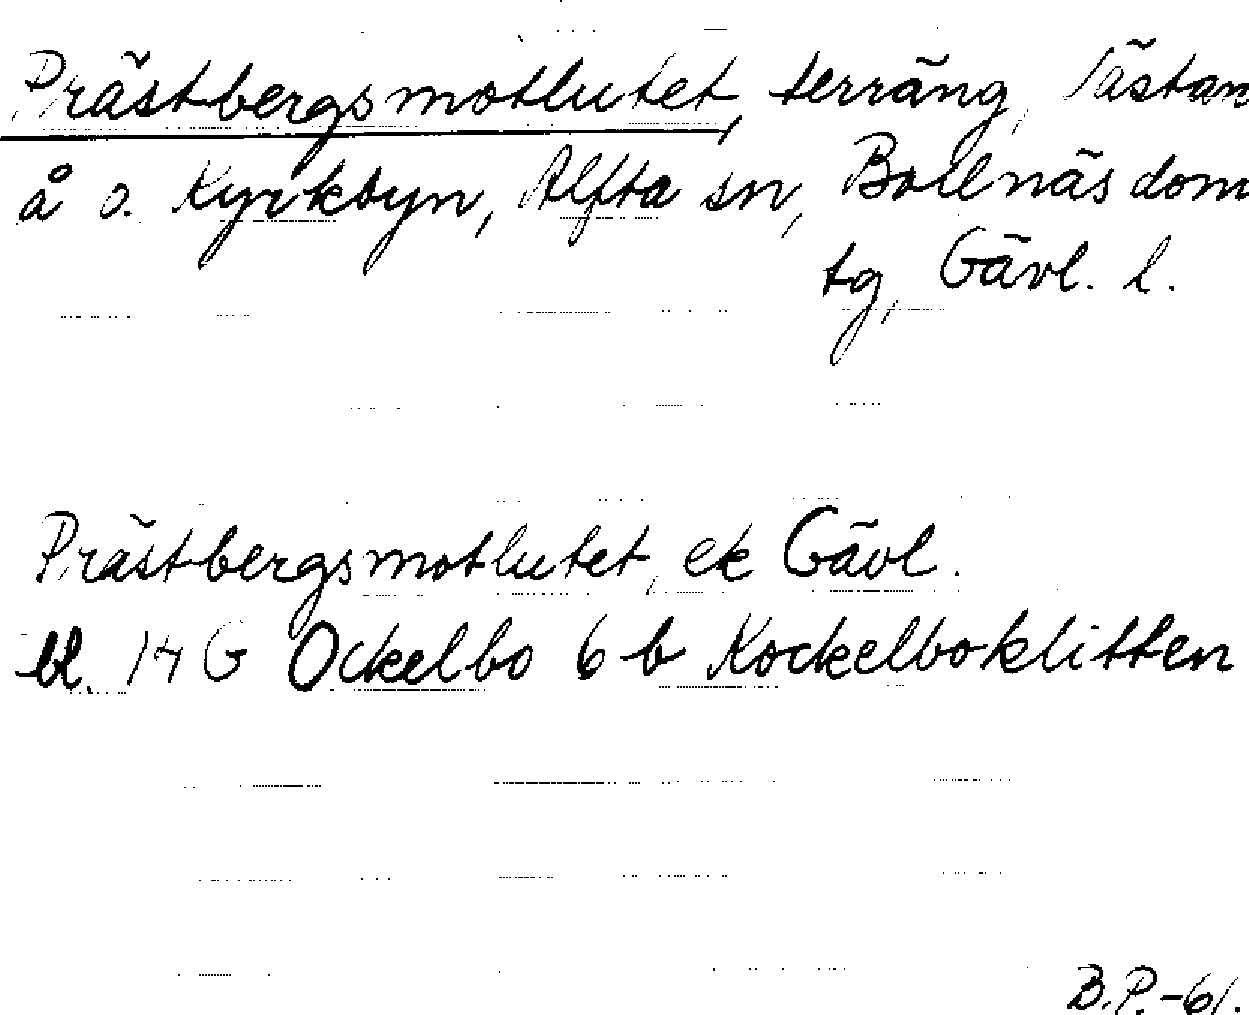 Prästbergsmotlutet, terräng, Västan
å o. Kyrkbyn, Alfta sn, Bollnäs dom
tg, Gävl. l.
Prästbergsmotlutet, ek Gävl.
bl. 14 G Ockelbo 6 b Kockelboklitten
B.P.-61.